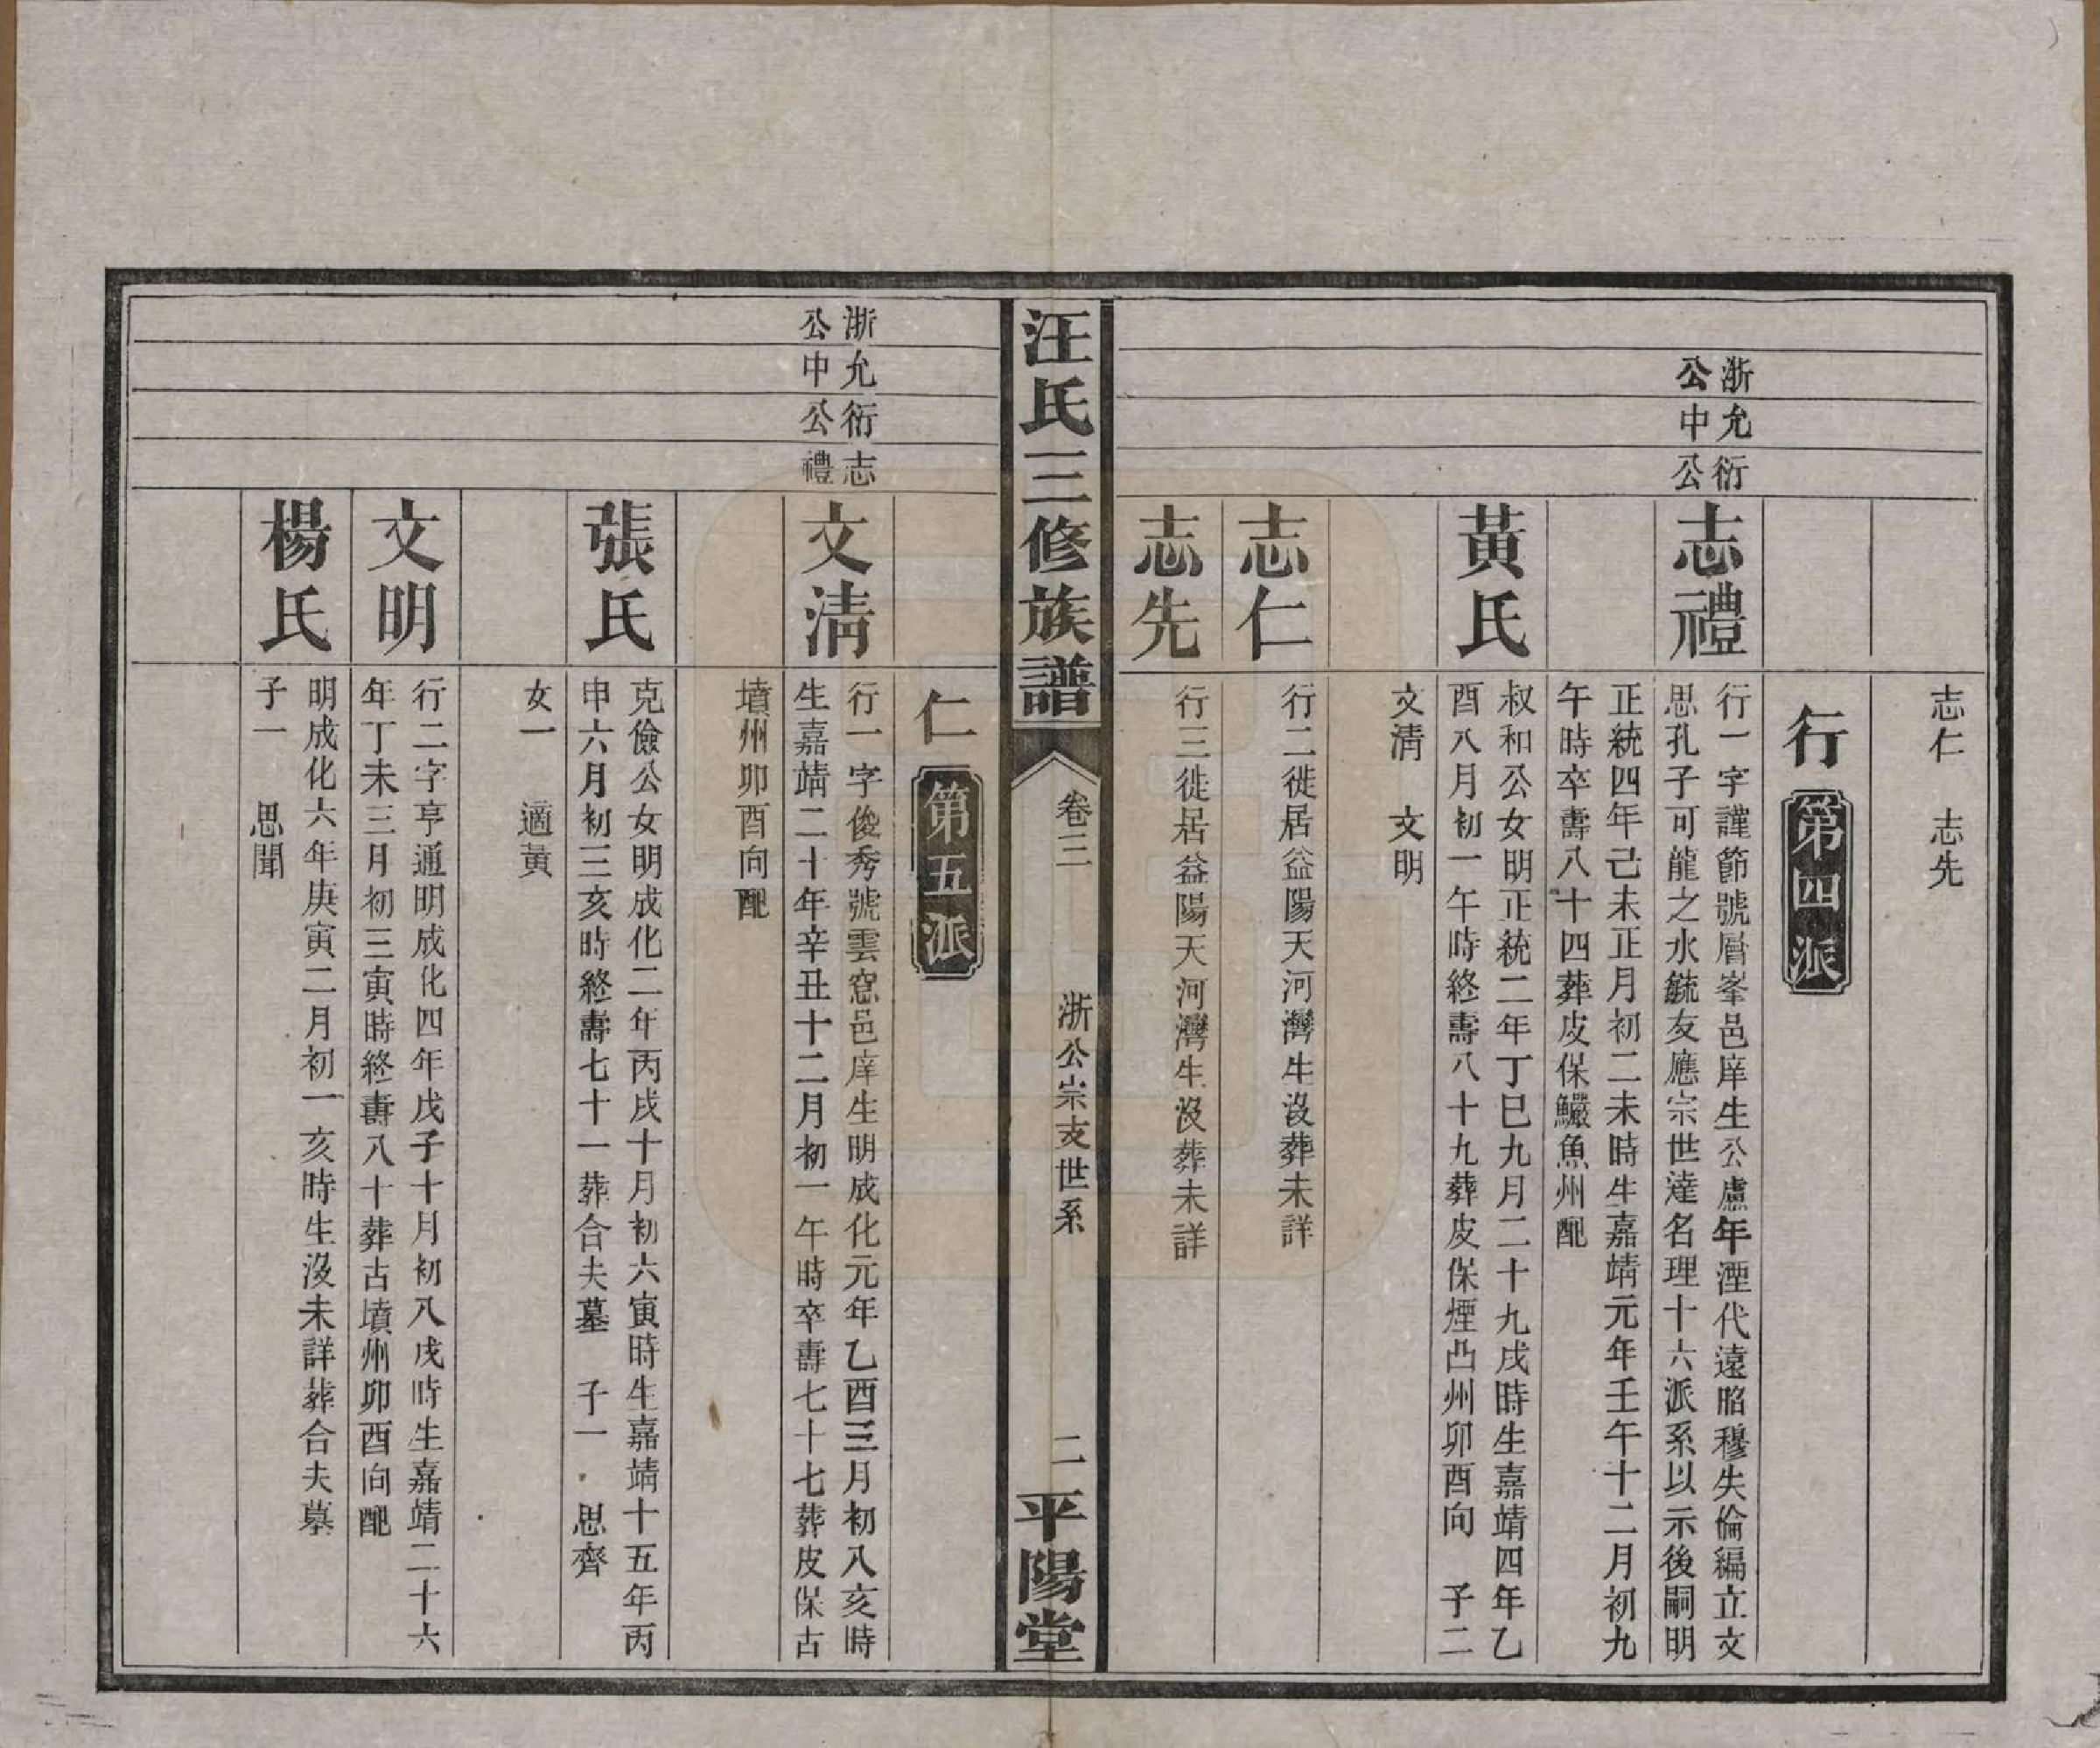 志仁 志先
行 第四派
浙公
允中
衍公
志禮
行一字謹節號層峯邑庠生公慮年湮代遠昭穆失倫編立文
思孔子可龍之水毓友應宗世達名理十六派系以示後嗣明
正統四年己未正月初二未時生嘉靖元年壬午十二月初九
午時卒壽八十四葬皮保鱺魚州配
黃氏
叔和公女明正統二年丁巳九月二十九戌時生嘉靖四年乙
酉八月初一午時終壽八十九葬皮保煙凸州卯酉向 子二
文清 文明
志仁
行二徙居益陽天河灣生沒葬未詳
志先
行三徙居益陽天河灣生沒葬未詳
汪氏三修族譜
卷二
浙公崇支世系
二
平陽堂
仁 第五派
浙公
允中
衍公
志禮
文清
行一字俊秀號雲窓邑庠生明成化元年乙酉三月初八亥時
生嘉靖二十年辛丑十二月初一午時卒壽七十七葬皮保古
墳州卯酉向配
張氏
克儉公女明成化二年丙戌十月初六寅時生嘉靖十五年丙
申六月初三亥時終壽七十一葬合夫墓 子一 思齊
女一 適黃
文明
行二字亨通明成化四年戊子十月初八戌時生嘉靖二十六
年丁未三月初三寅時終壽八十葬古墳州卯酉向配
楊氏
明成化六年庚寅二月初一亥時生沒未詳葬合夫墓
子一 思聞